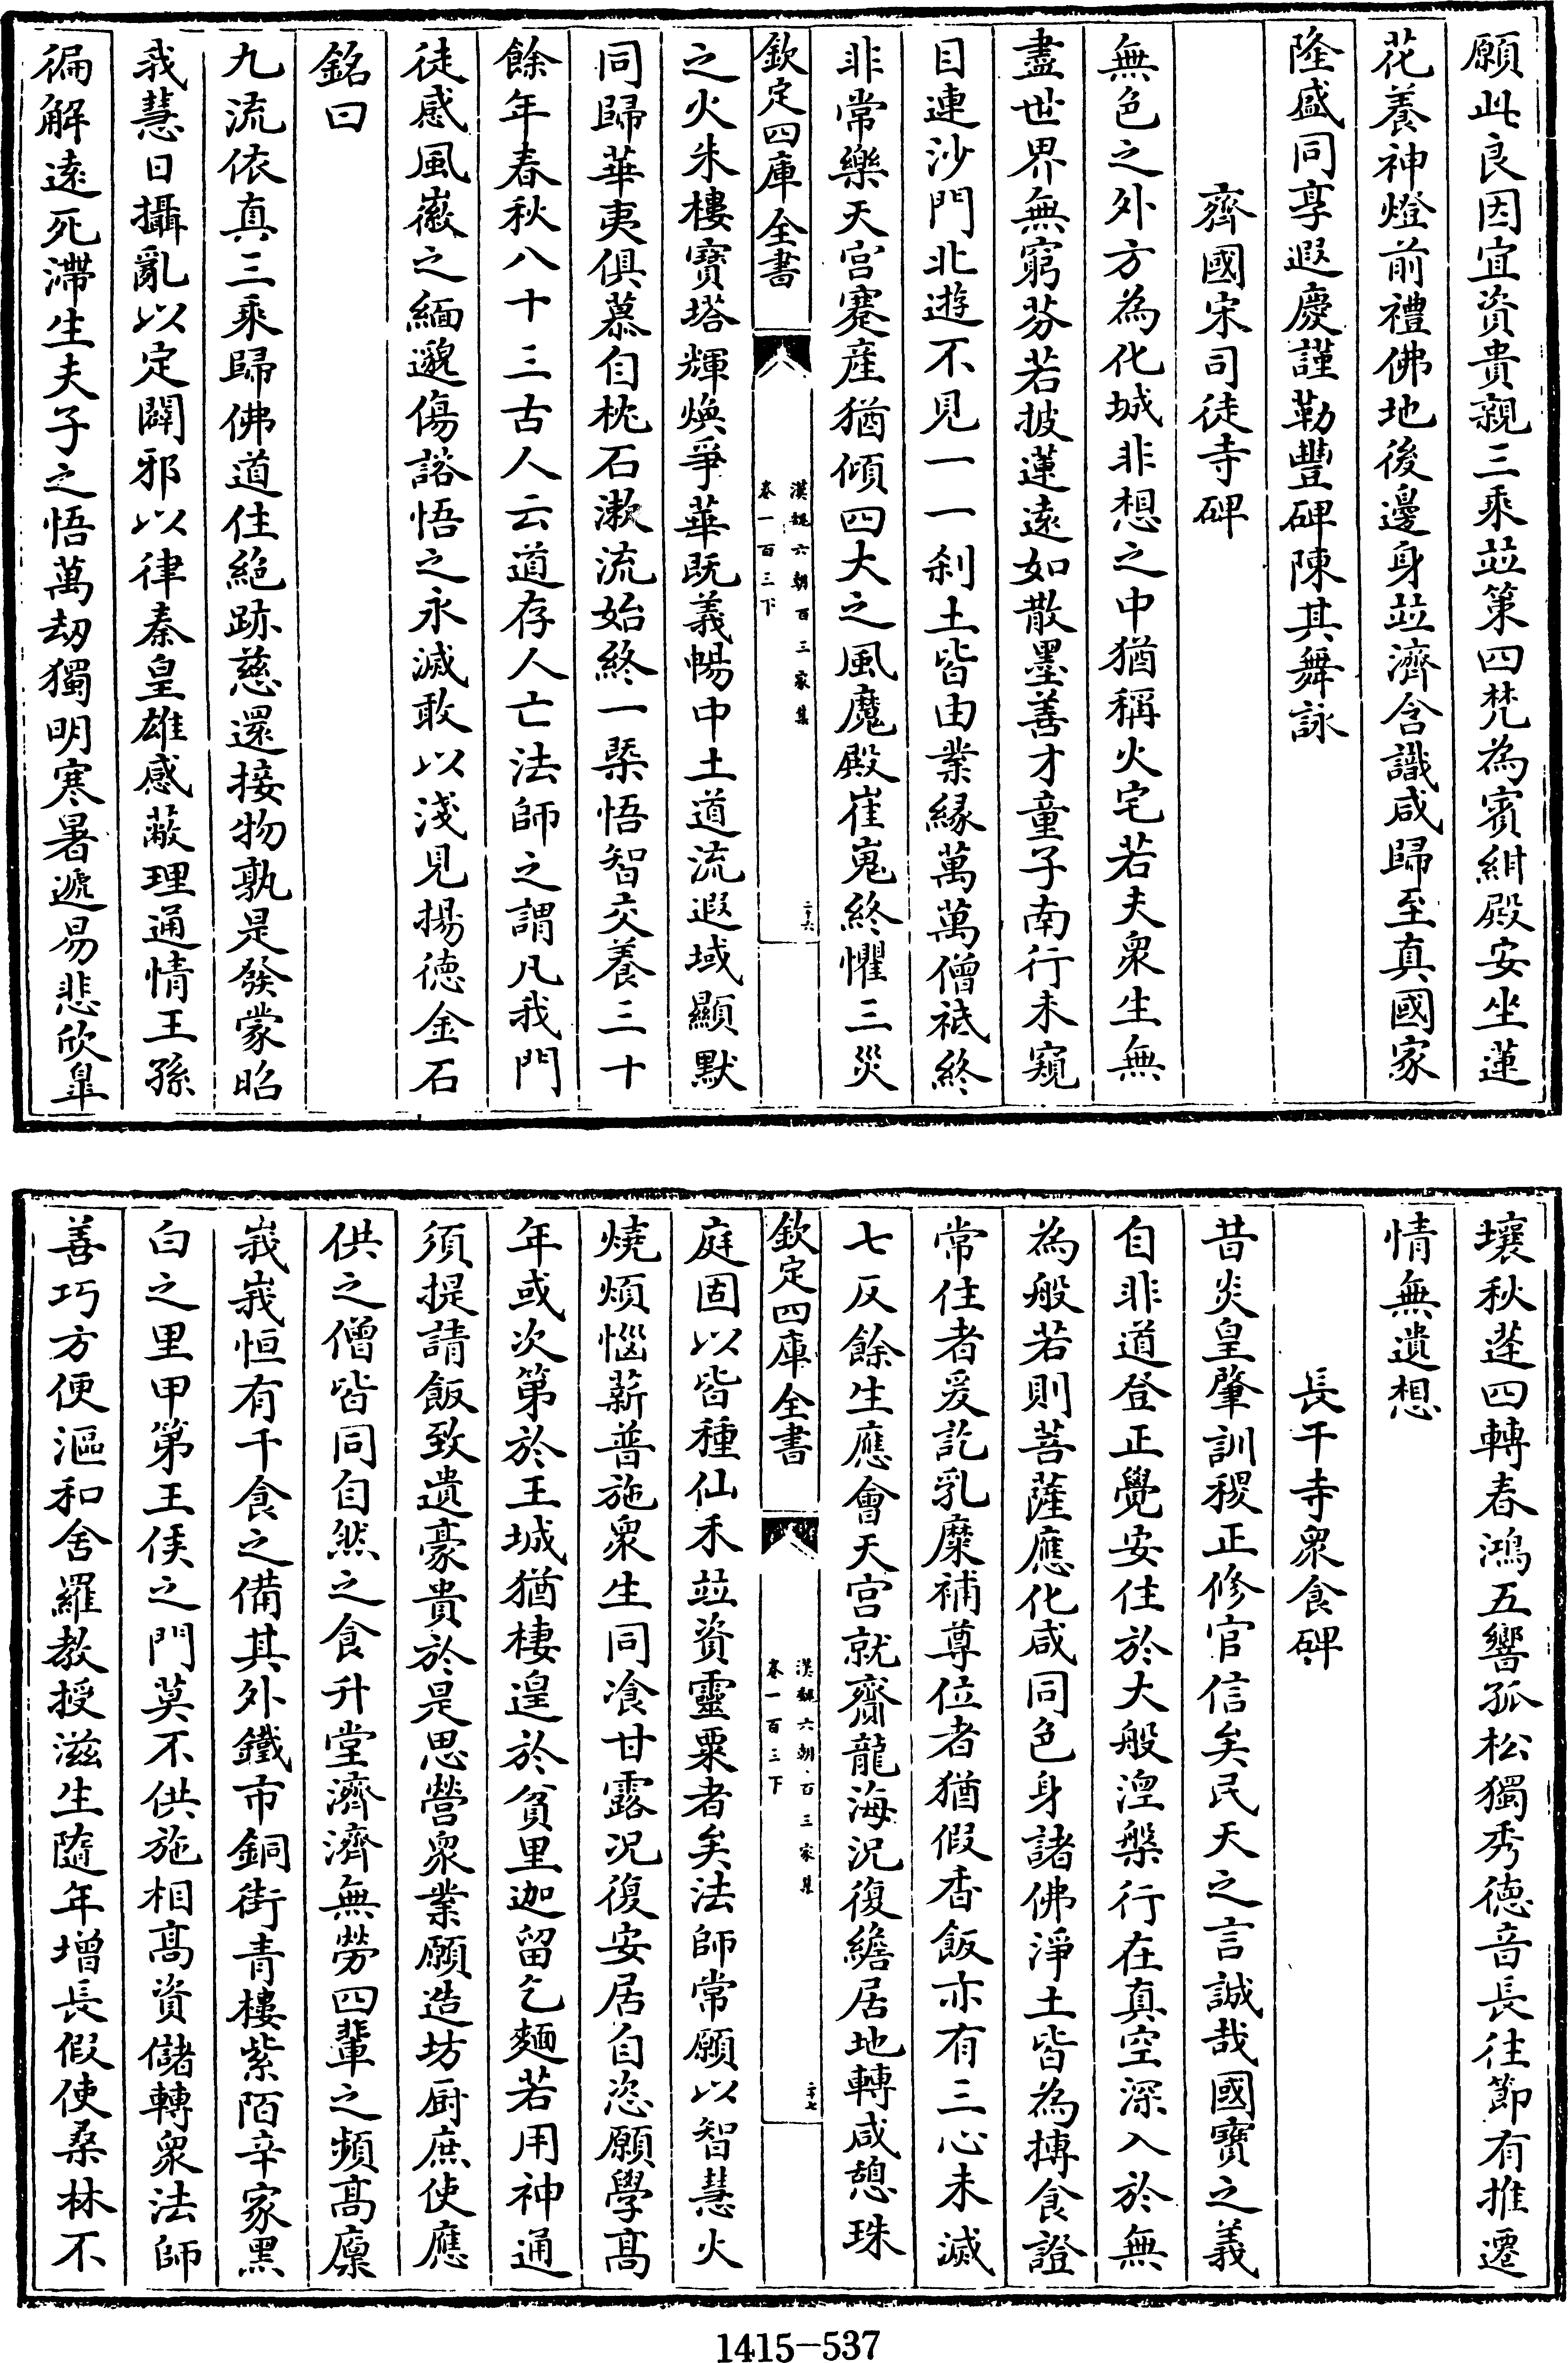 願此良因宜資貴親三乘竝策四梵為賓紺殿安坐蓮
花養神燈前禮佛地後邊身竝濟含識咸歸至真國家
隆盛同享遐慶謹勒豐碑陳其舞詠
齊國宋司徒寺碑
無色之外方為化城非想之中猶稱火宅若夫衆生無
盡世界無窮芬若披蓮遠如散墨善才童子南行未窺
目連沙門北遊不見一一刹土皆由業緣萬萬僧祇終
非常樂天宮蹇產猶傾四大之風魔殿崔嵬終懼三災
欽定四庫全書
漢魏六朝百三家集
卷一百三下
二十六
之火朱樓寶塔輝煥爭華既義暢中土道流遐域顯默
同歸華夷俱慕自枕石漱流始終一槩悟智交養三十
餘年春秋八十三古人云道存人亡法師之謂凡我門
徒感風徽之緬邈傷諮悟之永滅敢以淺見揚德金石
銘曰
九流依真三乘歸佛道住絕跡慈還接物孰是發蒙昭
我慧日攝亂以定闢邪以律秦皇雄感蔽理通情王孫
徧解遠死滯生夫子之悟萬劫獨明寒暑遞易悲欣皐
壤秋蓬四轉春鴻五響孤松獨秀德音長往節有推遷
情無遺想
長干寺衆食碑
昔炎皇肇訓稷正修官信矣民天之言誠哉國寶之義
自非道登正覺安住於大般湼槃行在真空深入於無
為般若則菩薩應化咸同色身諸佛淨土皆為搏食證
常住者爰訖乳糜補尊位者猶假香飯亦有三心未滅
七反餘生應會天宮就齋龍海況復繕居地轉咸憩珠
欽定四庫全書
漢魏六朝百三家集
卷一百三下
二十七
庭固以皆種仙禾竝資靈粟者矣法師常願以智慧火
燒煩惱薪普施衆生同飡甘露況復安居自恣願學高
年或次第於王城猶棲遑於貧里迦留乞麵若用神通
須提請飯致遺豪貴於是思營衆業願造坊厨庶使應
供之僧皆同自然之食升堂濟濟無勞四輩之頻高廩
峩峩恒有千食之備其外鐵市銅街青樓紫陌辛家黑
白之里甲第王侯之門莫不供施相高資儲轉衆法師
善巧方便漚和舍羅教授滋生隨年增長假使桑林不
1415-537